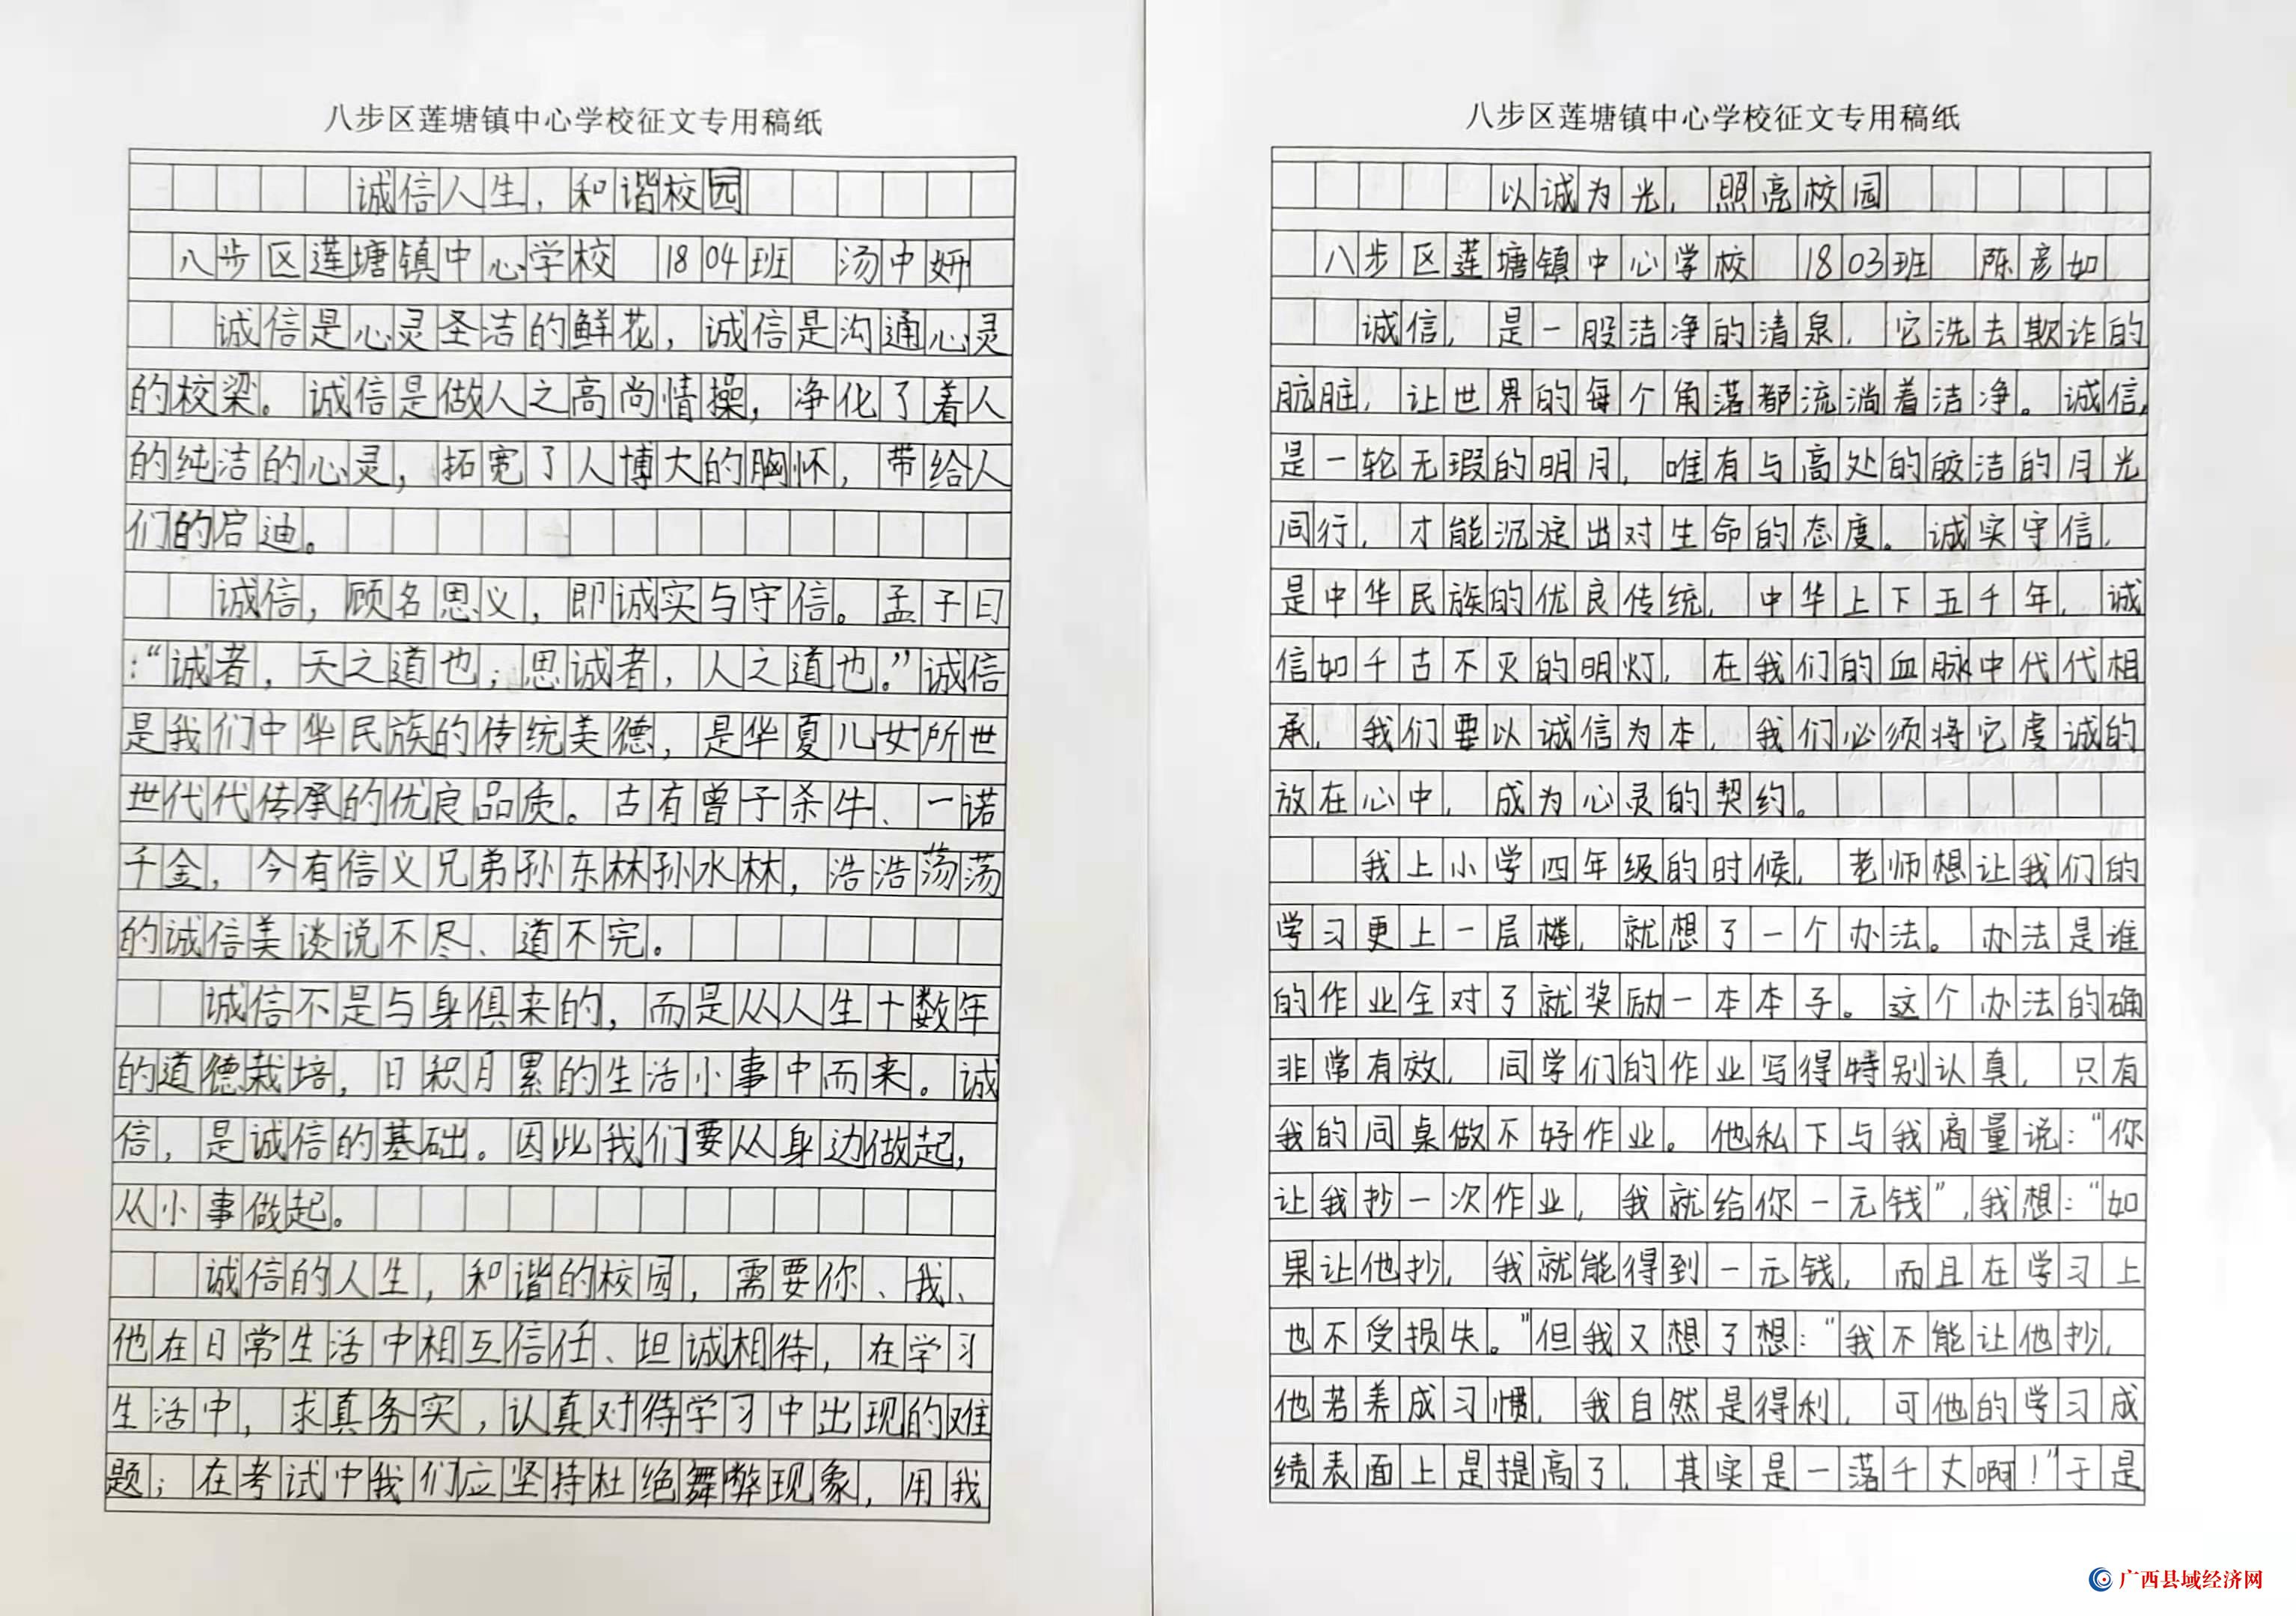 八步区莲塘镇中心学校征文专用稿纸
诚信人生，和谐校园
八步区莲塘镇中心学校 1804班 汤中妍
诚信是心灵圣洁的鲜花，诚信是沟通心灵
的校梁。诚信是做人之高尚情操，净化了着人
的纯洁的心灵，拓宽了人博大的胸怀，带给人
们的启迪。
诚信，顾名思义，即诚实与守信。孟子曰
：“诚者，天之道也；思诚者，人之道也。”诚信
是我们中华民族的传统美德，是华夏儿女所世
世代代传承的优良品质。古有曾子杀牛、一诺
千金，今有信义兄弟孙东林孙水林，浩浩荡荡
的诚信美谈说不尽、道不完。
诚信不是与身俱来的，而是从人生十数年
的道德栽培，日积月累的生活小事中而来。诚
信，是诚信的基础。因此我们要从身边做起，
从小事做起。
诚信的人生，和谐的校园，需要你、我、
他在日常生活中相互信任、坦诚相待，在学习
生活中，求真务实，认真对待学习中出现的难
题；在考试中我们应坚持杜绝舞弊现象，用我
八步区莲塘镇中心学校征文专用稿纸
以诚为光，照亮校园
八步区莲塘镇中心学校 1803班 陈彦如
诚信，是一股洁净的清泉，它洗去欺诈的
肮脏，让世界的每个角落都流淌着洁净。诚信，
是一轮无瑕的明月，唯有与高处的皎洁的月光
同行，才能沉淀出对生命的态度。诚实守信，
是中华民族的优良传统，中华上下五千年，诚
信如千古不灭的明灯，在我们的血脉中代代相
承，我们要以诚信为本，我们必须将它虔诚的
放在心中，成为心灵的契约。
我上小学四年级的时候，老师想让我们的
学习更上一层楼，就想了一个办法。办法是谁
的作业全对了就奖励一本本子。这个办法的确
非常有效，同学们的作业写得特别认真，只有
我的同桌做不好作业。他私下与我商量说：“你
让我抄一次作业，我就给你一元钱”，我想：“如
果让他抄，我就能得到一元钱，而且在学习上
也不受损失。”但我又想了想：“我不能让他抄，
他若养成习惯，我自然是得利，可他的学习成
绩表面上是提高了，其实是一落千丈啊！”于是
广西县域经济网